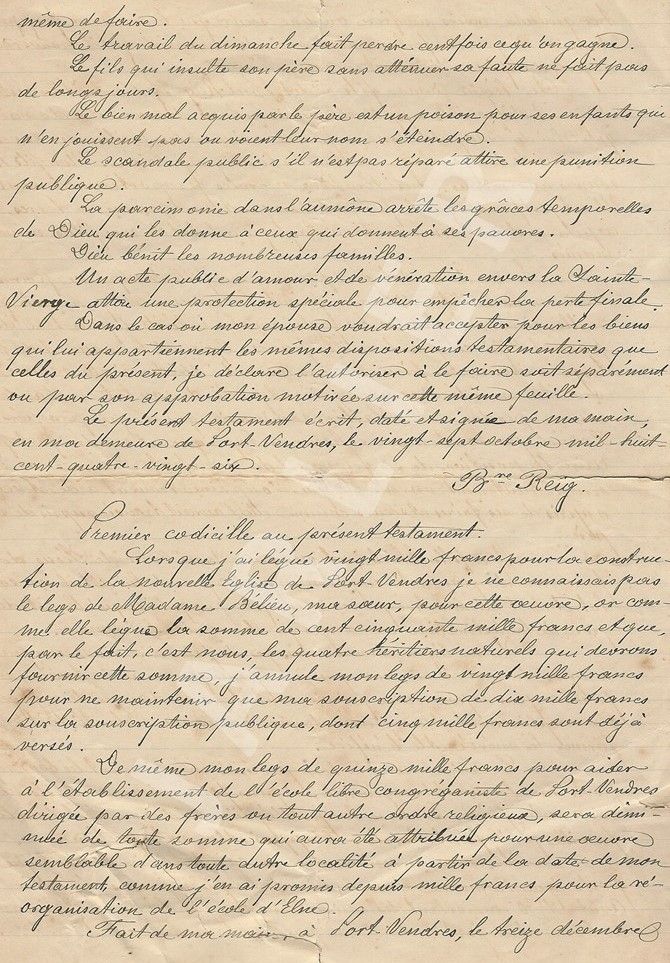 même de faire.
Le travail du dimanche fait perdre cent fois ce qu'on gagne.
Le fils qui insulte son père sans atténuer sa faute ne fait pas
de longs jours.
Le bien mal acquis par le père est un poison pour ses enfants qui
n'en jouissent pas ou voient leur nom s'éteindre.
Le scandale public s'il n'est pas réparé attire une punition
publique.
La parcimonie dans l'aumône arrête les grâces temporelles
de Dieu qui les donne à ceux qui donnent à ses pauvres.
Dieu bénit les nombreuses familles.
Un acte public d'amour et de vénération envers la Sainte-
Vierge attire une protection spéciale pour empêcher la perte finale.
Dans le cas où mon épouse voudrait accepter pour les biens
qui lui appartiennent les mêmes dispositions testamentaires que
celles du présent, je déclare l'autoriser à le faire soit séparément
ou par son approbation motivée sur cette même feuille.
Le présent testament écrit, daté et signé de ma main,
en ma demeure de Port-Vendres, le vingt-sept octobre mil-huit-
cent-quatre-vingt-six.
Bre Reig.
Premier codicille au présent testament.
Lorsque j'ai légué vingt mille francs pour la construc-
tion de la nouvelle Eglise de Port-Vendres je ne connaissais pas
le legs de Madame Béliéu, ma sœur, pour cette œuvre, or com-
me elle lègue la somme de cent cinquante mille francs et que
par le fait, c'est nous, les quatre héritiers naturels qui devrons
fournir cette somme, j'annule mon legs de vingt mille francs
pour ne maintenir que ma souscription de dix mille francs
sur la souscription publique, dont cinq mille francs sont déjà
versés.
De même mon legs de quinze mille francs pour aider
à l'établissement de l'école libre congréganiste de Port-Vendres
dirigée par des frères ou tout autre ordre religieux, sera dimi-
nuée de toute somme qui aura été attribuée pour une œuvre
semblable dans toute autre localité à partir de la date de mon
testament, comme j'en ai promis depuis mille francs pour la ré-
organisation de l'école d'Elne.
Fait de ma main, à Port-Vendres, le treize décembre